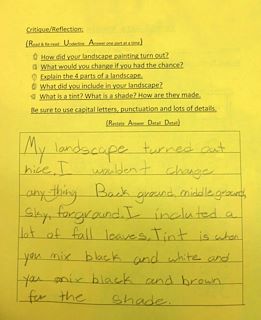 Critique/Reflection:
(Read & Re-read Underline Answer one part at a time)
How did your landscape painting turn out?
What would you change if you had the chance?
Explain the 4 parts of a landscape.
What did you include in your landscape?
What is a tint? What is a shade? How are they made.
Be sure to use capital letters, punctuation and lots of details.
(Restate Answer Detail Detail)
My landscape turned out
nice. I wouldn't change
any thing Back ground, middle ground,
sky, forground. I included a
lot of fall leaves. Tint is when
you mix black and white and
you mix black and brown
for the shade.